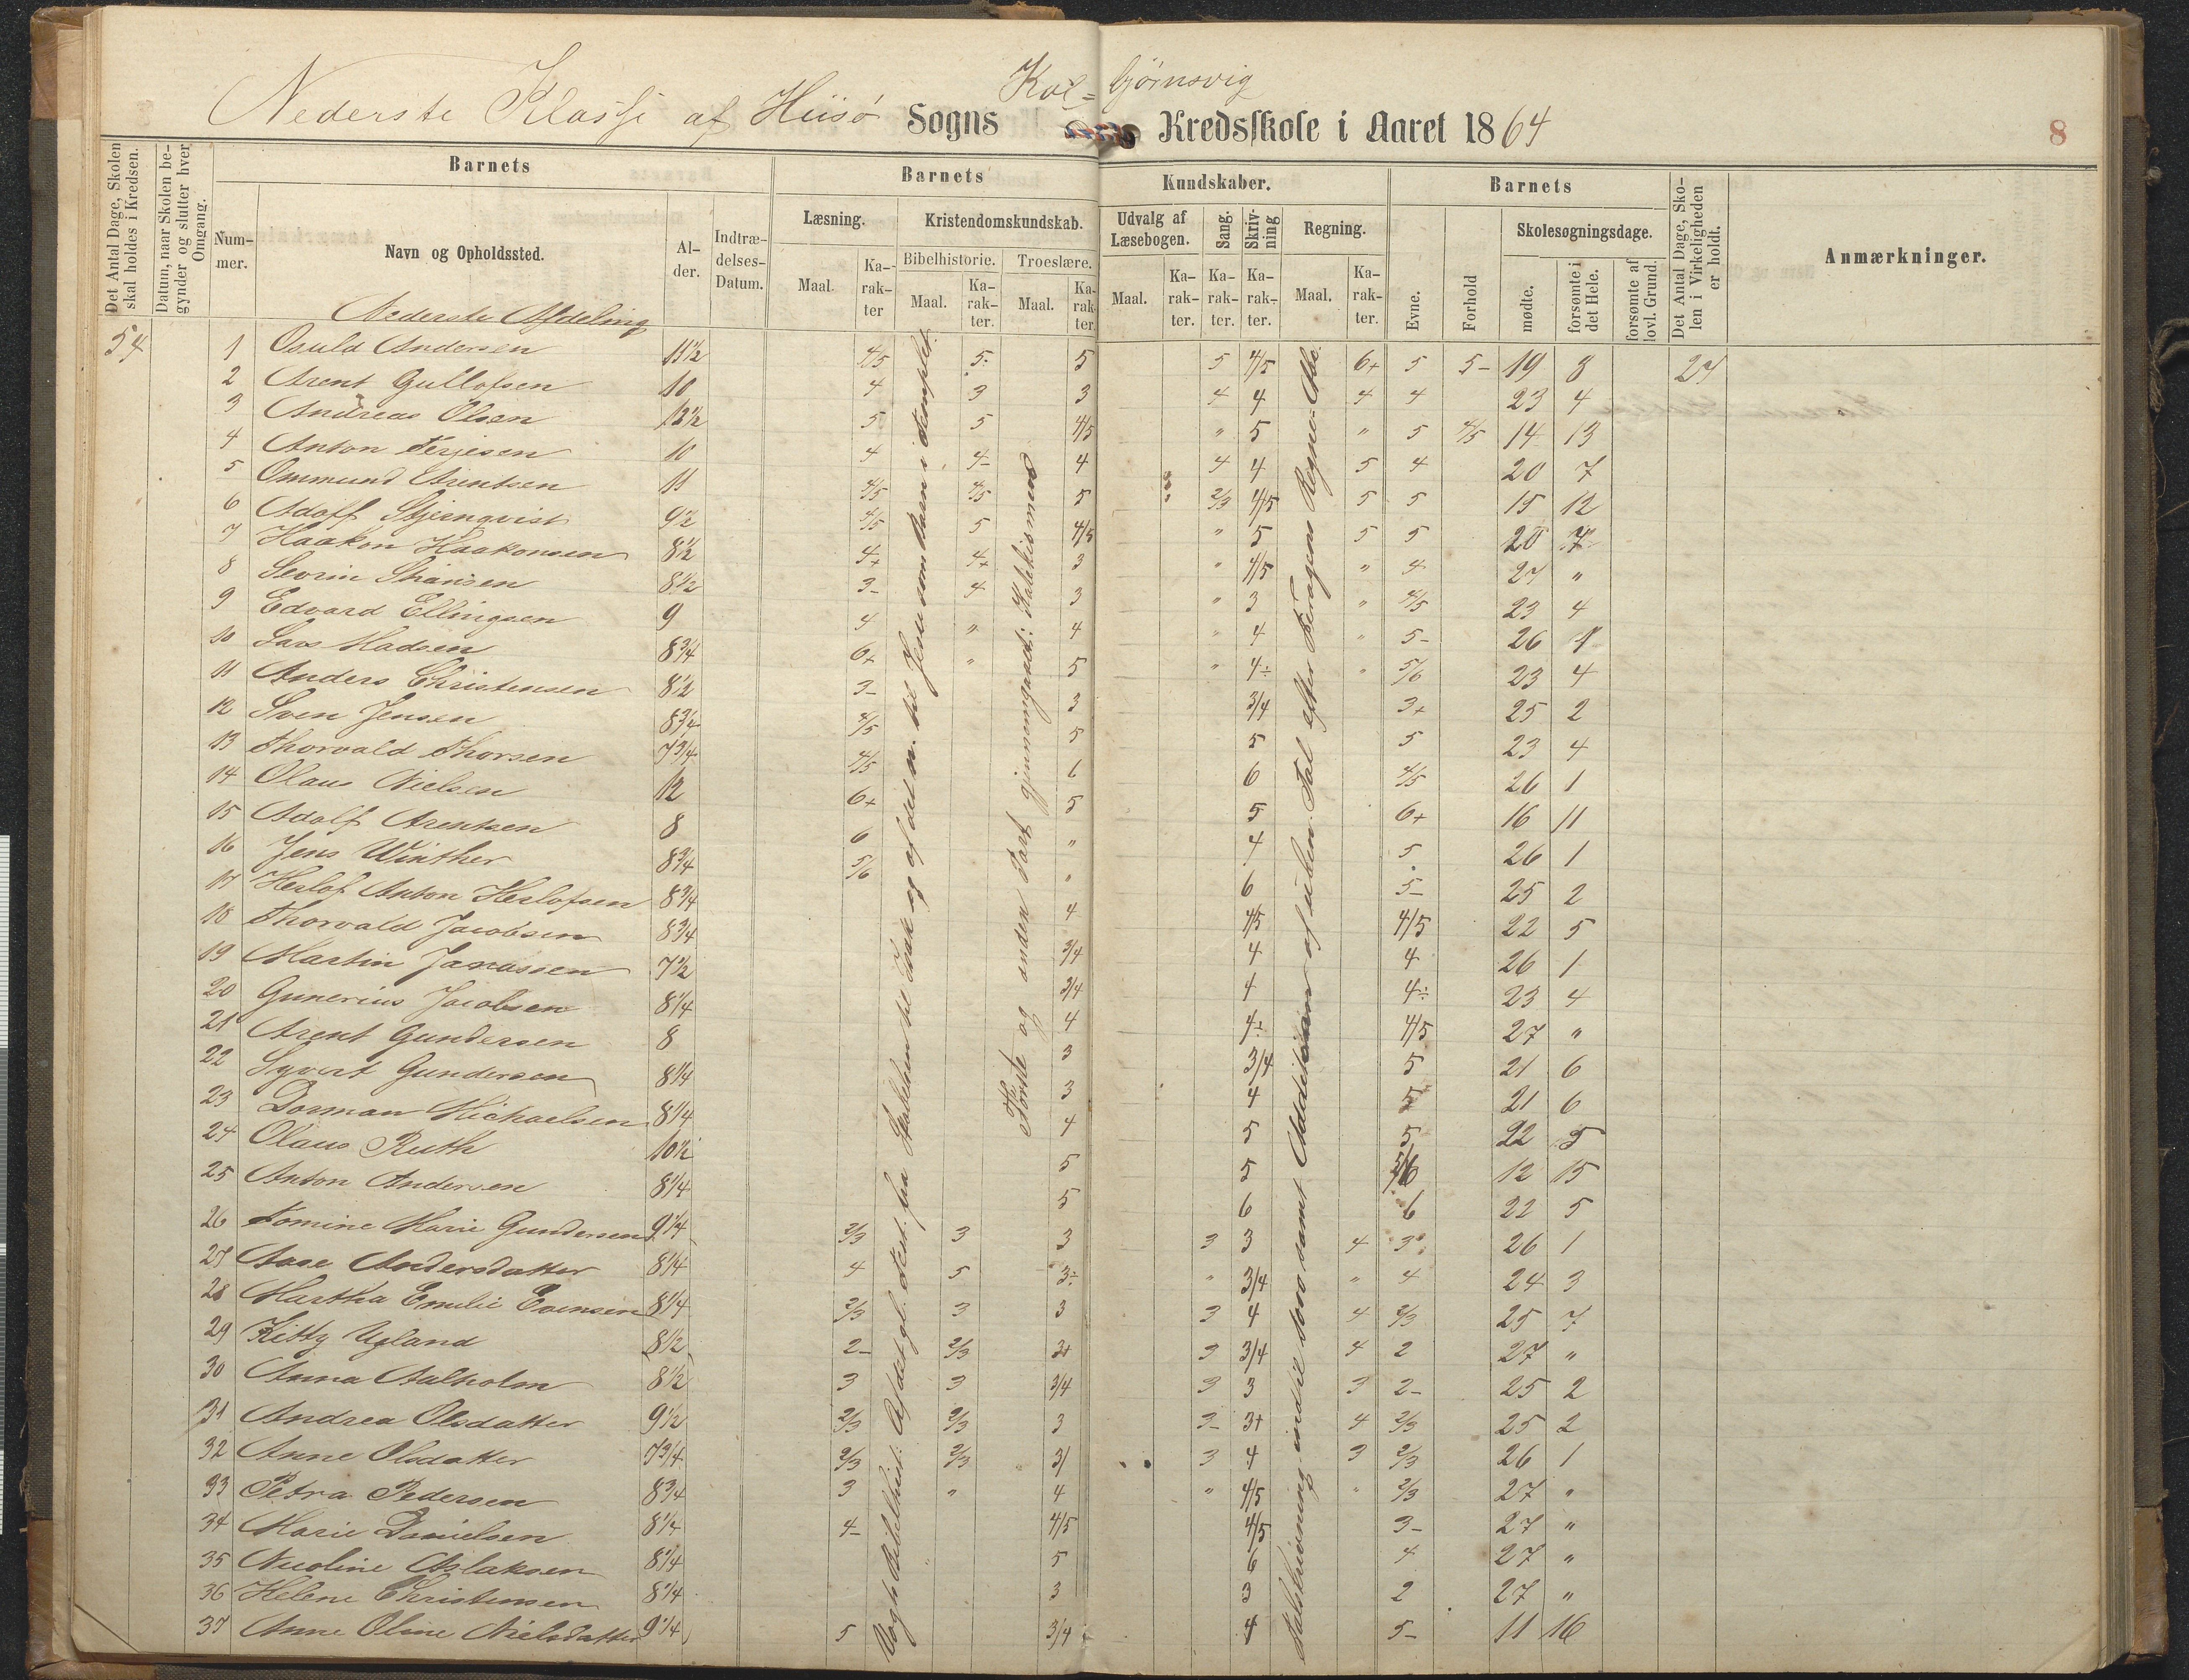 Kol= bjørnsvig
Nederste Klasse af Hiisø Sogns Kredsskole i Aaret 1864
8
Det Antal Dage, Skolen skal holdes i Kredsen.
Datum, naar Skolen begynder og slutter hver Omgang.
Barnets
Barnets
Kundskaber.
Barnets
Det Antal Dage, Skolen i Virkeligheden er holdt.
Anmærkninger.
Nummer.
Navn og Opholdssted.
Alder.
Indtrædelses-Datum.
Læsning.
Kristendomskundskab.
Udvalg af Læsebogen.
Sang.
Skrivning
Regning.
Evne.
Forhold
Skolesøgningsdage.
Bibelhistorie.
Troeslære.
Maal.
Karakter
Maal.
Karakter.
Maal.
Karakter.
Maal.
Karakter.
Karakter.
Karakter.
Maal.
Karakter.
mødte.
forsømte i det Hele.
forsømte af lovl. Grund.
Nederste Afdeling
54 1 Osuld Andersen 11½ 4/5 5. 5 5 4/5 6+ 5 5- 19 8 27
2 Arent Gullofsen 10 4 3 3 4 4 4 4 23 4
3 Andreas Olsen 13½ 5 5 4/5 " 5 " 5 4/5 14 13
4 Anton Terjesen 10 4 4- 4 4 4 5 4 20 7
5 Ommund Arentsen 11 4/5 4/5 5 2/3 4/5 5 5 15 12
6 Adolf Stjernqvist 9½ 4/5 5 4/5 " 5 5 5 20 7
7 Haakon Haakonsen 8½ 4+ 4+ 3 " 4/5 " 4 27 "
8 Sevrin 8½ 3- 4 3 " 3 " 4/5 23 4
9 Edvard Ellingsen 9 4 " 4 " 4 " 5- 26 1
10 Lars Madsen 8¾ 6+ " 5 " 4÷ " 5/6 23 4
11 Anders Christensen 8½ 3- 3 3/4 3+ 25 2
12 Sven Jensen 8¾ 4/5 5 5 5 23 4
13 Thorvald Thorsen 7¾ 4/5 6 6 4/5 26 1
14 Olaus Nielsen 12 6+ 5 5 6+ 16 11
15 Adolf Arentsen 8 6 " 4 5 26 1
16 Jens Winther 8¾ 5/6 " 6 5- 25 2
17 Herlof Anton Herlofsen 8¾ 4 4/5 4/5 22 5
18 Thorvald Jacobsen 8¾ 3/4 4 4 26 1
19 Martin Janassen 7½ 3/4 4 4÷ 23 4
20 Gunerius Jacobsen 8¼ 4 4+ 4/5 27 "
21 Arent Gundersen 8 3 3/4 5 21 6
22 Syvert Gundersen 8¼ 3 4 5 21 6
23 Dorman Michaelsen 8¼ 4 5 5 22 5
24 Olaus Ruth 10½ 5 5 5/6 12 15
25 Anton Andersen 8¼ 5 6 6 22 5
26 Tomine Marie Gundersen 9¼ 2/3 3 3 3 3 4 3 26 1
27 Aase Andersdatter 8¼ 4 5 3÷ " 3/4 " 4 24 3
28 Martha Emilie Evensen 8¼ 2/3 3 3 3 4 4 2/3 25 7
29 Kitty Ugland 8½ 2- 2/3 3+ 3 3/4 4 2 27 "
30 Anna Aalholm 8½ 3 3 3/4 3 3 3 2- 25 2
31 Andrea Olsdatter 9½ 2/3 2/3 3 3- 3+ 4 2/3 25 2
32 Anne Olsdatter 7¾ 2/3 2/3 3/ 3 4 3 2/3 26 1
33 Petra Pedersen 8¾ 3 " 4 " 4/5 " 2/3 27 "
34 Marie Danielsen 8¼ 4- 4/5 4/5 3- 27 "
35 Nicoline Aslaksen 8¼ 5 6 4 27 "
36 Helene Christensen 8¼ 3 3 2 27 "
37 Anne Oline Nielsdatter 9¼ 5 3/4 4 5- 11 16
Vogts Bibelhist: Af det gl. Test. fra til Isak og af det n. til Jesus som Barn i Templet.
Første og anden Part gjennemgaaet: Katekismen
Talskrivning indtil 1000 samt Addition af uben. Tal efter Regne-Abc.